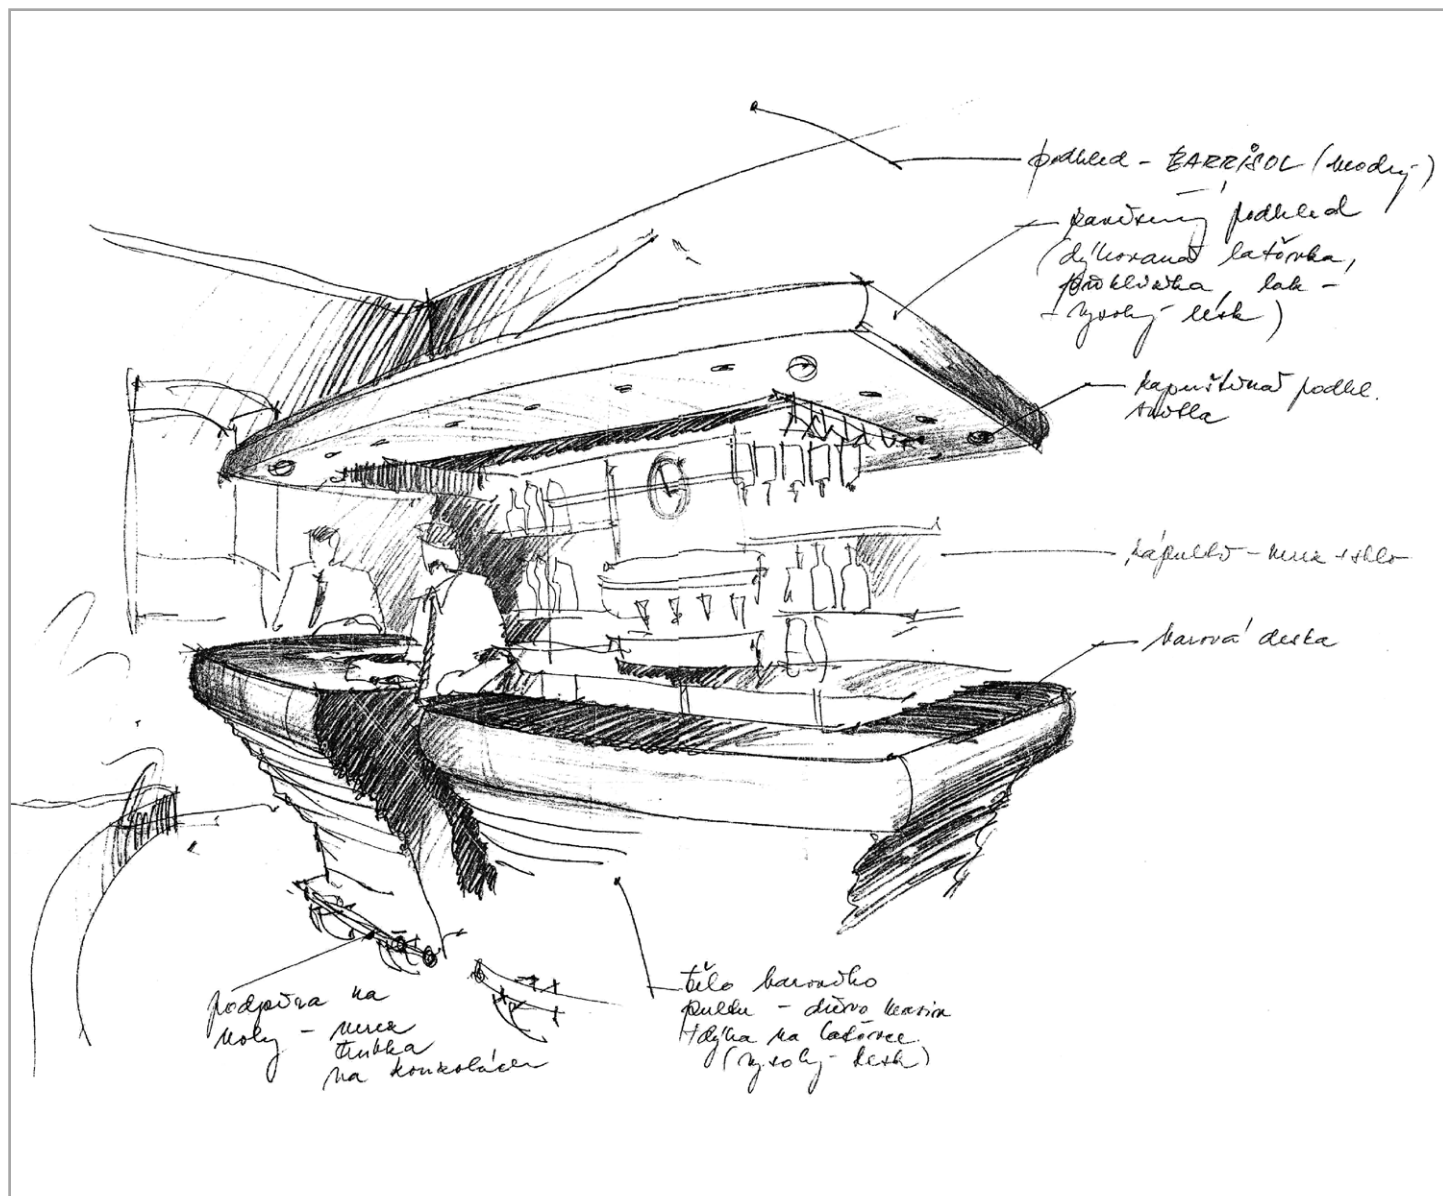 podhled - BARRISOL (modrý)
zavěšený podhled
(dýhovaná laťovka,
lak -
vysoký lesk)
zapuštěná podhl.
světla
zápultí - nerez + sklo
barová deska
podpěra na
nohy - nerez
trubka
na konzolách
tělo barového
pultu - dřevo masiv
+ dýha na laťovce
(vysoký lesk)